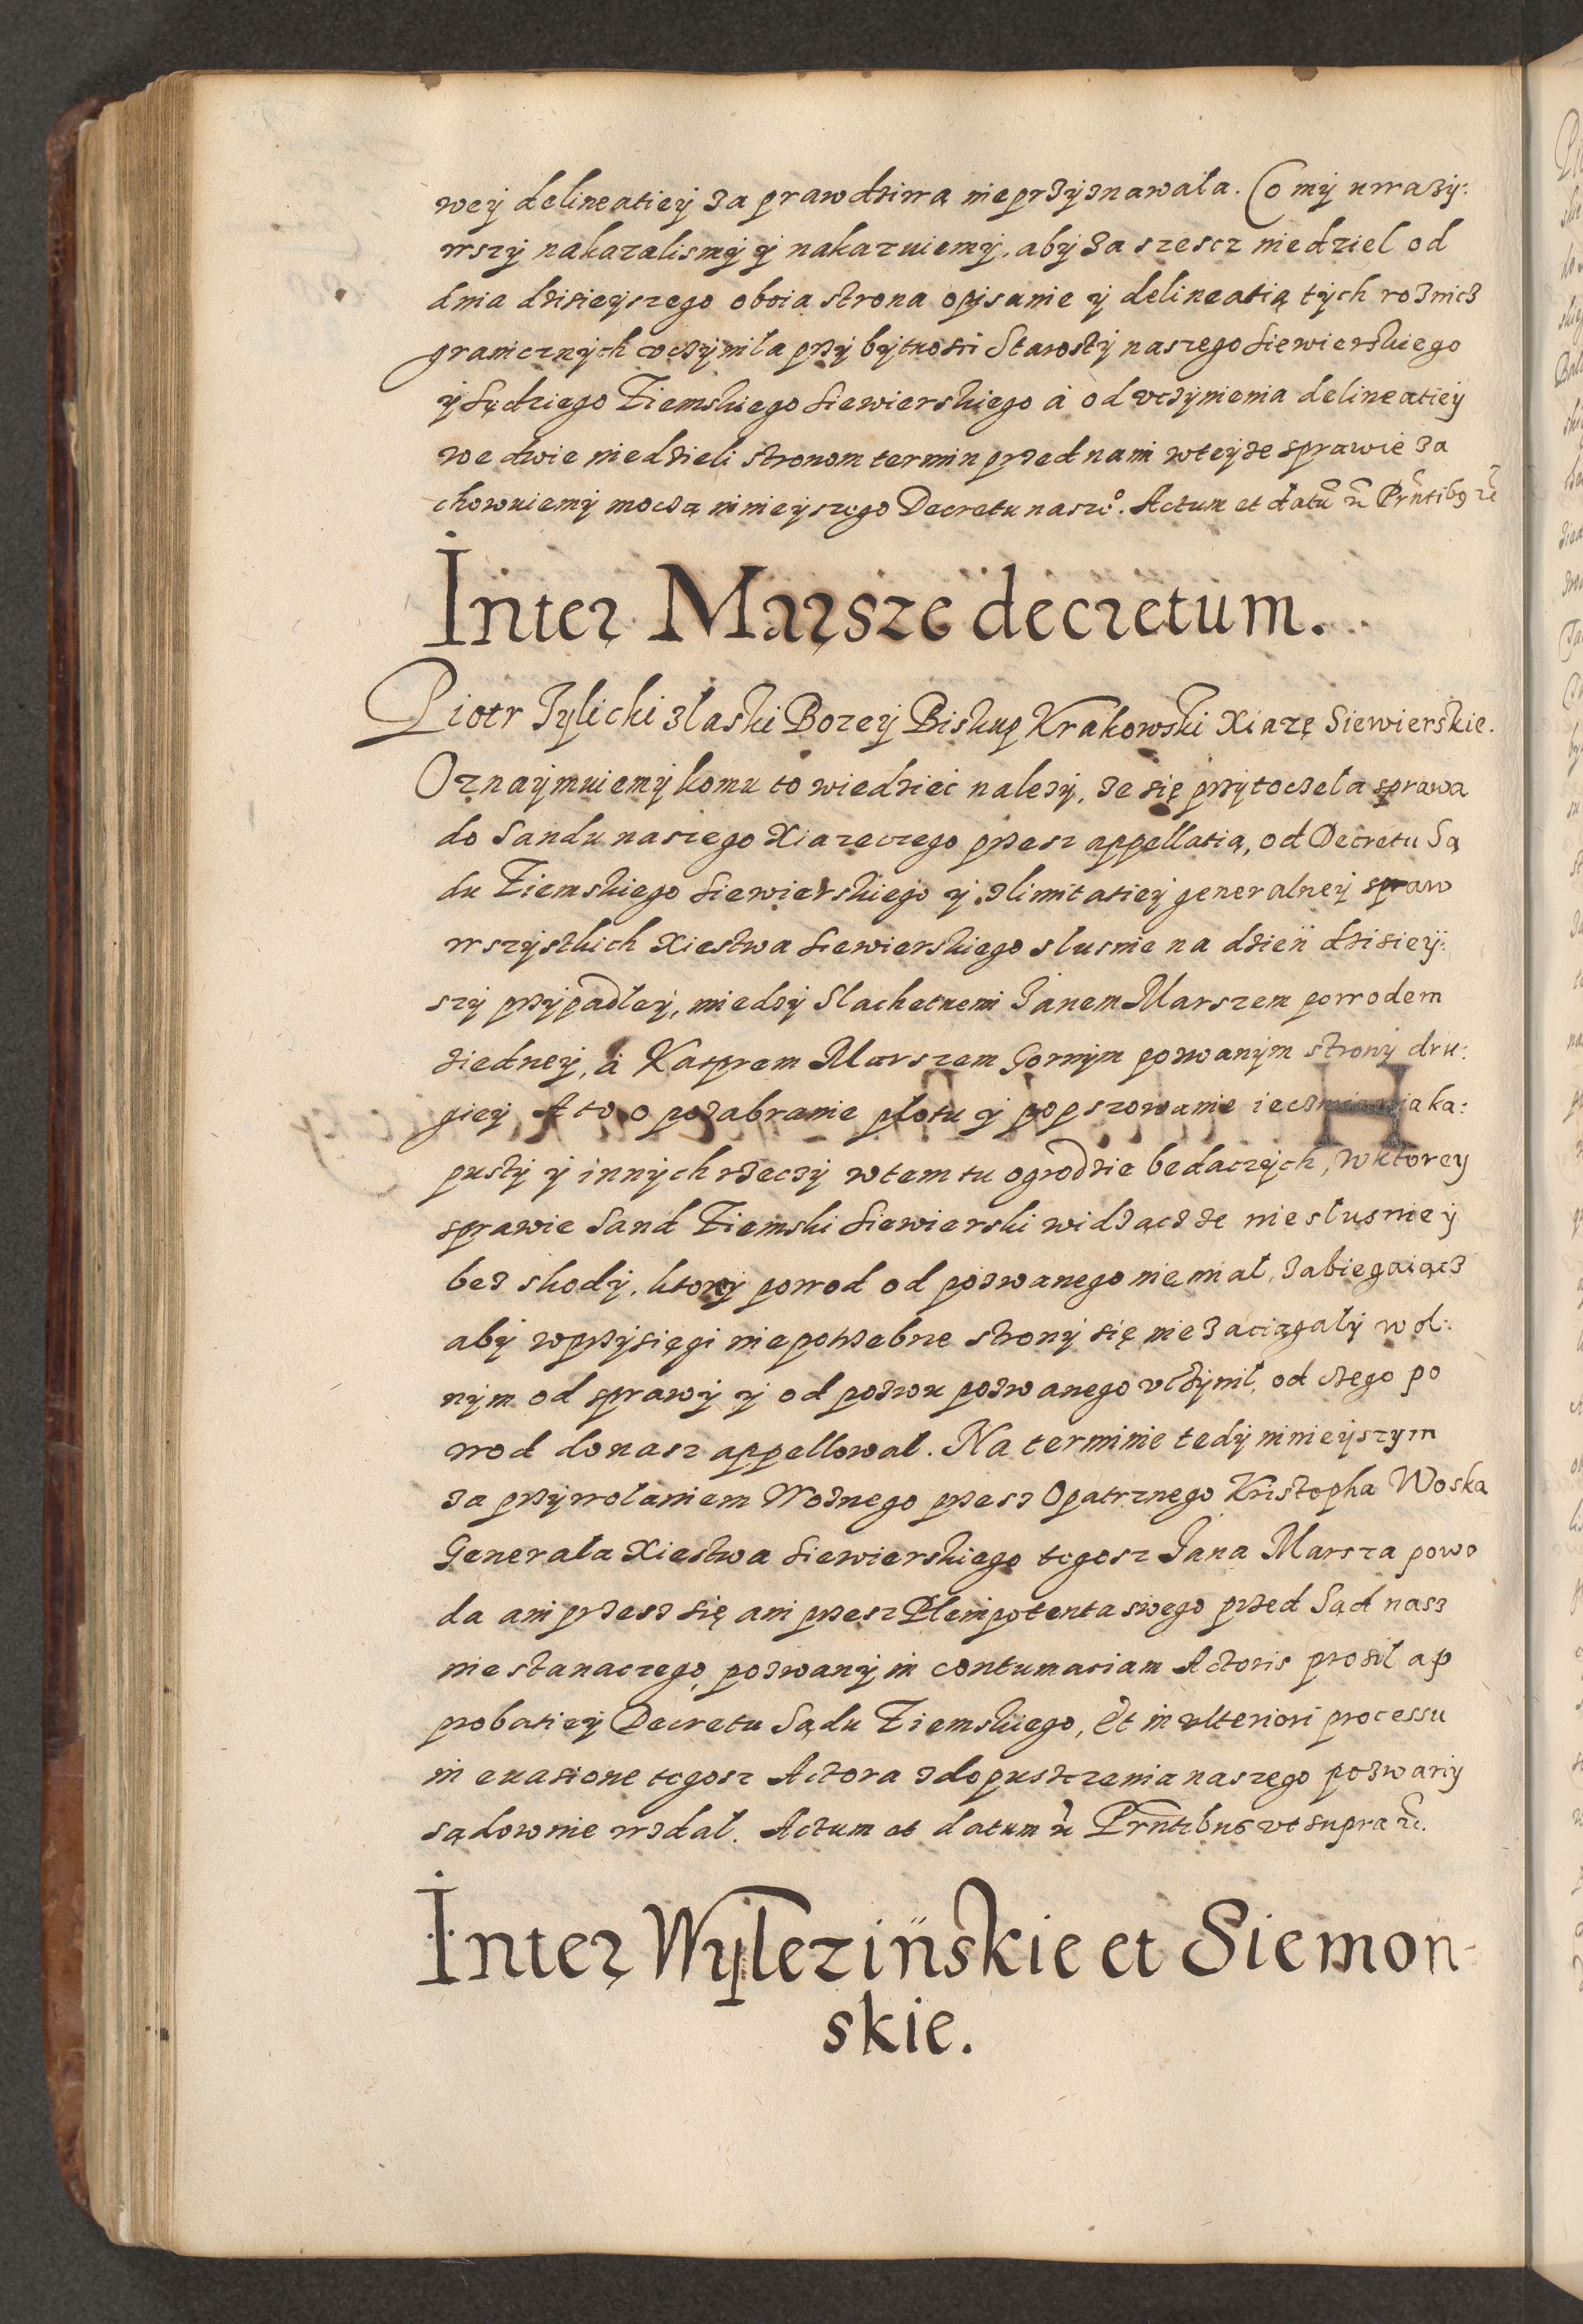 wey delineatiey za prawdziwą nieprzyznawała. Co my uwazy:
wszy nakazalismy y nakazuiemy, aby za szescz niedziel od
dnia dzisieyszego oboia strona opisanie y delineatią tych roznicz
granicznych vczyniła przy bytnosci Starosty naszego Siewierskiego
y Sędziego Ziemskiego Siewierskiego à od vczynienia delineatiey
we dwie niedzieli stronom termin przed nami wteyze sprawie za
chowuiemy moczą ninieyszego Decretu nasze°. Actum et datū ut Prntibg rc
Inter Marsze decretum.
Piotr Tylicki złaski Bozey Biskup Krakowski Xiazę Siewierskie.
Oznaymuiemy komu to wiedzieć nalezy, ze się przytoczeła sprawa
do Sandu naszego Xiazeczego przesz appellatią, od Decretu Są
du Ziemskiego Siewierskiego y zlimitatiey generalney spraw
wszystkich Xiestwa Siewierskiego slusnie na dzień dzisiey:
szy przypadłey, miedzy Slachetnemi Janem Marszem powodem
ziedney, à Kasprem Marszem Gornym pozwanym strony dru:
giey A to o pozabranie płotu y popszowanie ieczmienia ka:
pusty y innych rzeczy wtem tu ogrodzie bedaczych, wktorey
sprawie Sand Ziemski Siewierski widzącz ze nieslusnie y
bez skody, ktory powod od pozwanego niemiał, zabiegaiącz
aby wprzysięgi niepotrzebne strony się niezaciągały wol:
nym od sprawy y od pozwu pozwanego vczynił, od czego po
wod donasz appellował. Na terminie tedy ninieyszym
za przywołaniem Woznego przesz Opatrznego Krisztopha Woska
Generała Xiestwa Siewierskiego tegosz Jana Marsza powo
da ani przesz się ani przesz Plenipotenta swego przed Sąd nasz
niestanaczego, pozwany in contumatiam Actoris prosił ap
probatiey Decretu Sądu Ziemskiego, Et in vlteriori processu
in euasione tegosz Actora zdopustczenia naszego pozwany
sądownie wzdał. Actum et datum ut Prntibus vt supra rc.
Inter Wylezińskie et Siemoń-
skie.